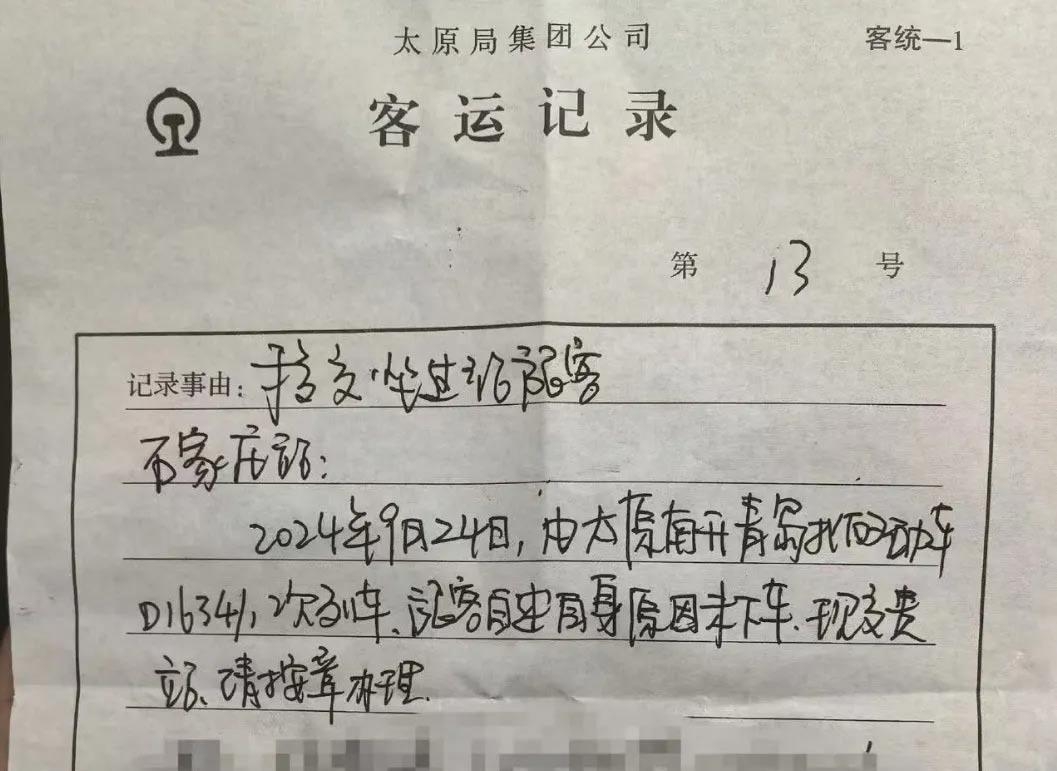 太原局集团公司
客统—1
客运记录
第 13 号
记录事由：移交坐过站旅客
石家庄站：
2024年9月24日，由太原南开青岛北的动车
D1634/1次列车、旅客自述自身原因未下车、现交贵
站、请按章办理.